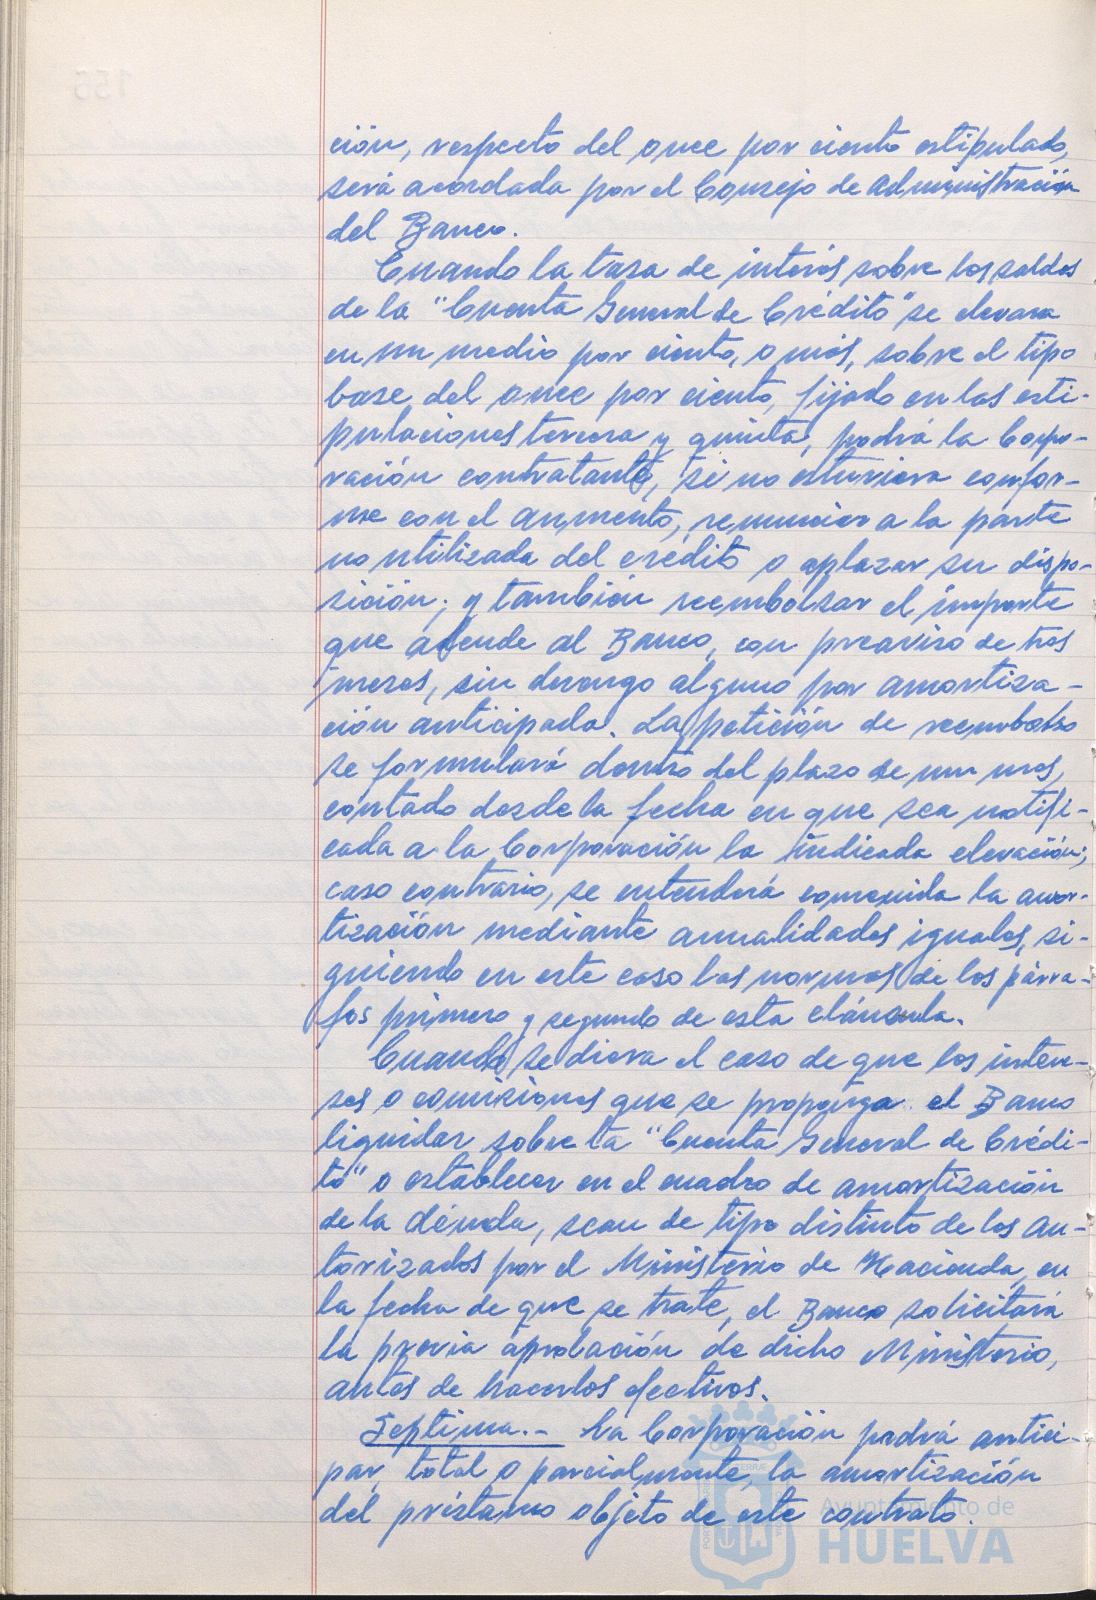 ción, respecto del once por ciento estipulado,
será acordada por el Consejo de Administración
del Banco.
Cuando la tasa de interés sobre los saldos
de la "Cuenta General de Crédito" se elevara
en un medio por ciento, o más, sobre el tipo
base del once por ciento, fijado en las esti-
pulaciones tercera y quinta, podrá la Corpo-
ración contratante, si no estuviera confor-
me con el aumento, renunciar a la parte
no utilizada del crédito o aplazar su dispo-
sición; y también reembolsar el importe
que adeude al Banco, con preaviso de tres
meses, sin devengo alguno por amortiza-
ción anticipada. La petición de reembolso
se formulará dentro del plazo de un mes,
contado desde la fecha en que sea notifi-
cada a la Corporación la indicada elevación;
caso contrario, se entenderá convenida la amor-
tización mediante anualidades iguales, si-
guiendo en este caso las normas de los párra-
fos primero y segundo de esta cláusula.
Cuando se diera el caso de que los intere-
ses o comisiones que se proponga el Banco
liquidar sobre la "Cuenta General de Crédi-
to" o establecer en el cuadro de amortización
de la déuda, sean de tipo distinto de los au-
torizados por el Ministerio de Hacienda, en
la fecha de que se trate, el Banco solicitará
la previa aprobación de dicho Ministerio,
antes de hacerlos efectivos.
Septima.- La Corporación podrá antici-
par, total o parcialmente, la amortización
del préstamo objeto de este contrato.
Ayuntamiento de
HUELVA
155